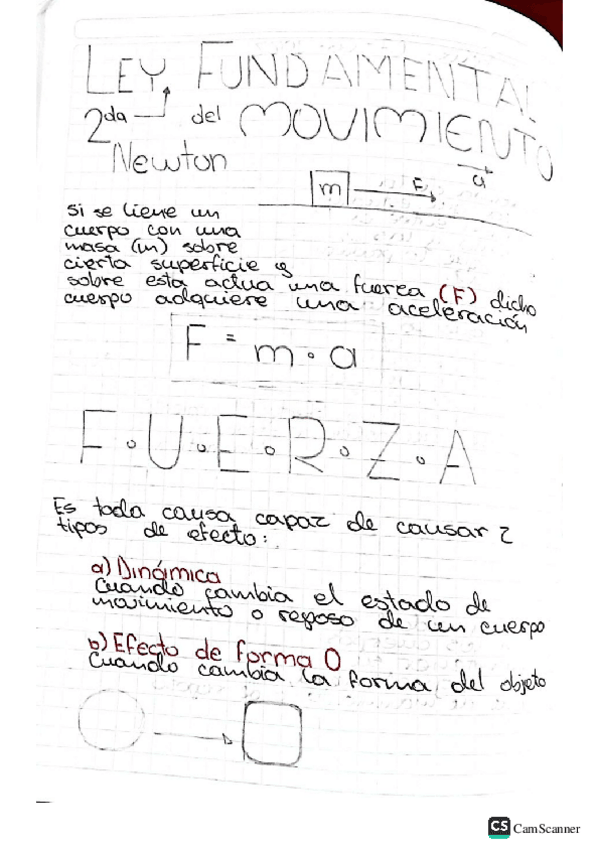 LEY FUNDAMENTAL
2da del MOVIMIENTO
Newton
m F a
Si se tiene un
cuerpo con una
masa (m) sobre
cierta superficie y
sobre esta actua una fuerza (F) dicho
cuerpo adquiere una aceleración
F = m · a
F.U.E.R.Z.A
Es toda causa capaz de causar 2
tipos de efecto:
a) Dinámica
Cuando cambia el estado de
movimiento o reposo de un cuerpo
b) Efecto de forma O
Cuando cambia la forma del objeto
CS CamScanner